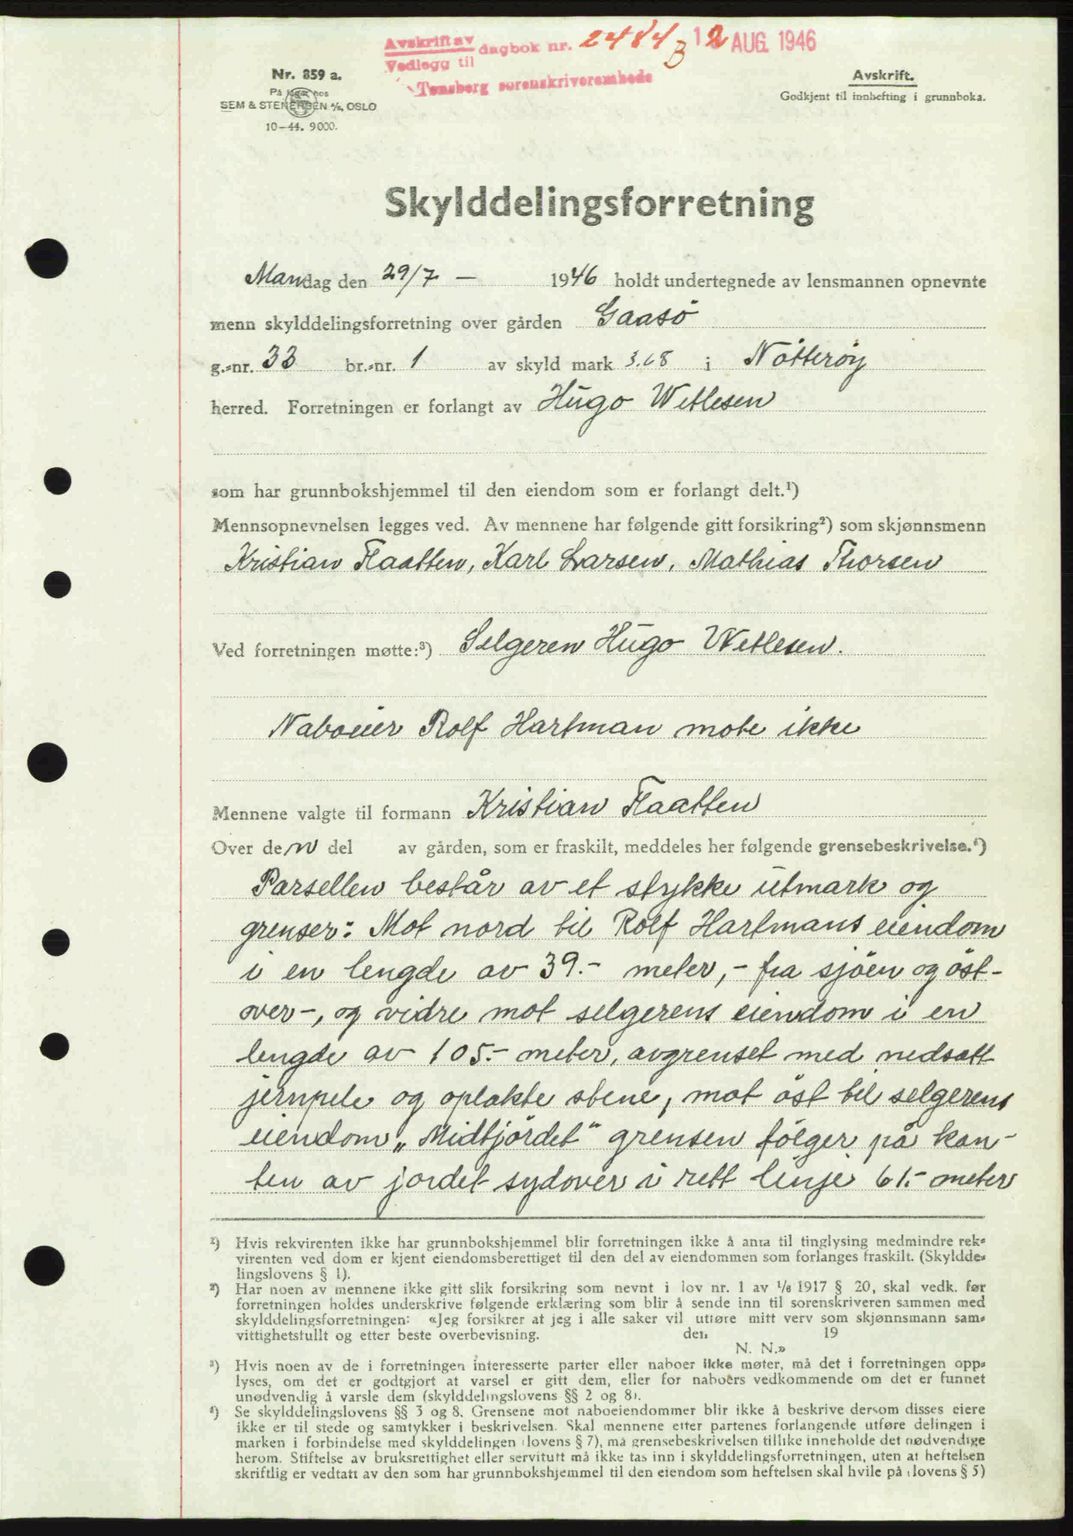 Avskrift av dagbok nr. 2484 B 12 AUG. 1946
Vedlegg til
Tønsberg sorenskriverembede
Nr. 859 a.
På lager hos
SEM & STENERSEN A/S, OSLO
10-44. 9000.
Avskrift.
Godkjent til innhefting i grunnboka.
Skylddelingsforretning
Mandag den 29/7 — 1946 holdt undertegnede av lensmannen opnevnte
menn skylddelingsforretning over gården Gaasö
g.-nr. 33 br.-nr. 1 av skyld mark 3.68 i Nötteröy
herred. Forretningen er forlangt av Hugo Wetlesen
som har grunnbokshjemmel til den eiendom som er forlangt delt.¹)
Mennsopnevnelsen legges ved. Av mennene har følgende gitt forsikring²) som skjønnsmenn
Kristian Flaatten, Karl Larsen, Mathias Thorsen
Ved forretningen møtte:³) Selgeren Hugo Wetlesen.
Naboeier Rolf Hartman mote ikke
Mennene valgte til formann Kristian Flaatten
Over den del av gården, som er fraskilt, meddeles her følgende grensebeskrivelse.⁴)
Parsellen består av et stykke utmark og
grenser: Mot nord til Rolf Hartmans eiendom
i en lengde av 39.- meter, - fra sjöen og öst-
over -, og vidre mot selgerens eiendom i en
lengde av 105.- meter, avgrenset med nedsatt
jernpele og oplakte stene, mot öst til selgerens
eiendom „Midtjördet" grensen fölger på kan-
ten av jordet sydover i rett linje 61.- meter
¹) Hvis rekvirenten ikke har grunnbokshjemmel blir forretningen ikke å anta til tinglysing medmindre rek-
virenten ved dom er kjent eiendomsberettiget til den del av eiendommen som forlanges fraskilt. (Skyldde-
lingslovens § 1).
²) Har noen av mennene ikke gitt slik forsikring som nevnt i lov nr. 1 av 1/6 1917 § 20, skal vedk. før
forretningen holdes underskrive følgende erklæring som blir å sende inn til sorenskriveren sammen med
skylddelingsforretningen: «Jeg forsikrer at jeg i alle saker vil utføre mitt verv som skjønnsmann sam-
vittighetsfullt og etter beste overbevisning. den 19
N. N.»
³) Hvis noen av de i forretningen interesserte parter eller naboer ikke møter, må det i forretningen opp-
lyses, om det er godtgjort at varsel er gitt dem, eller for naboers vedkommende om det er funnet
unødvendig å varsle dem (skylddelingslovens §§ 2 og 8).
⁴) Se skylddelingslovens §§ 3 og 8. Grensene mot naboeiendommer blir ikke å beskrive dersom disses eiere
ikke er til stede og samtykker i beskrivelsen. Skal mennene etter partenes forlangende utføre delingen i
marken i forbindelse med skylddelingen (lovens § 7), må grensebeskrivelsen tillike inneholde det nødvendige
herom. Stiftelse av bruksrettighet eller servitutt må ikke tas inn i skylddelingsforretningen, uten at heftelsen
skriftlig er vedtatt av den som har grunnbokshjemmel til den eiendom som heftelsen skal hvile på (lovens § 5)